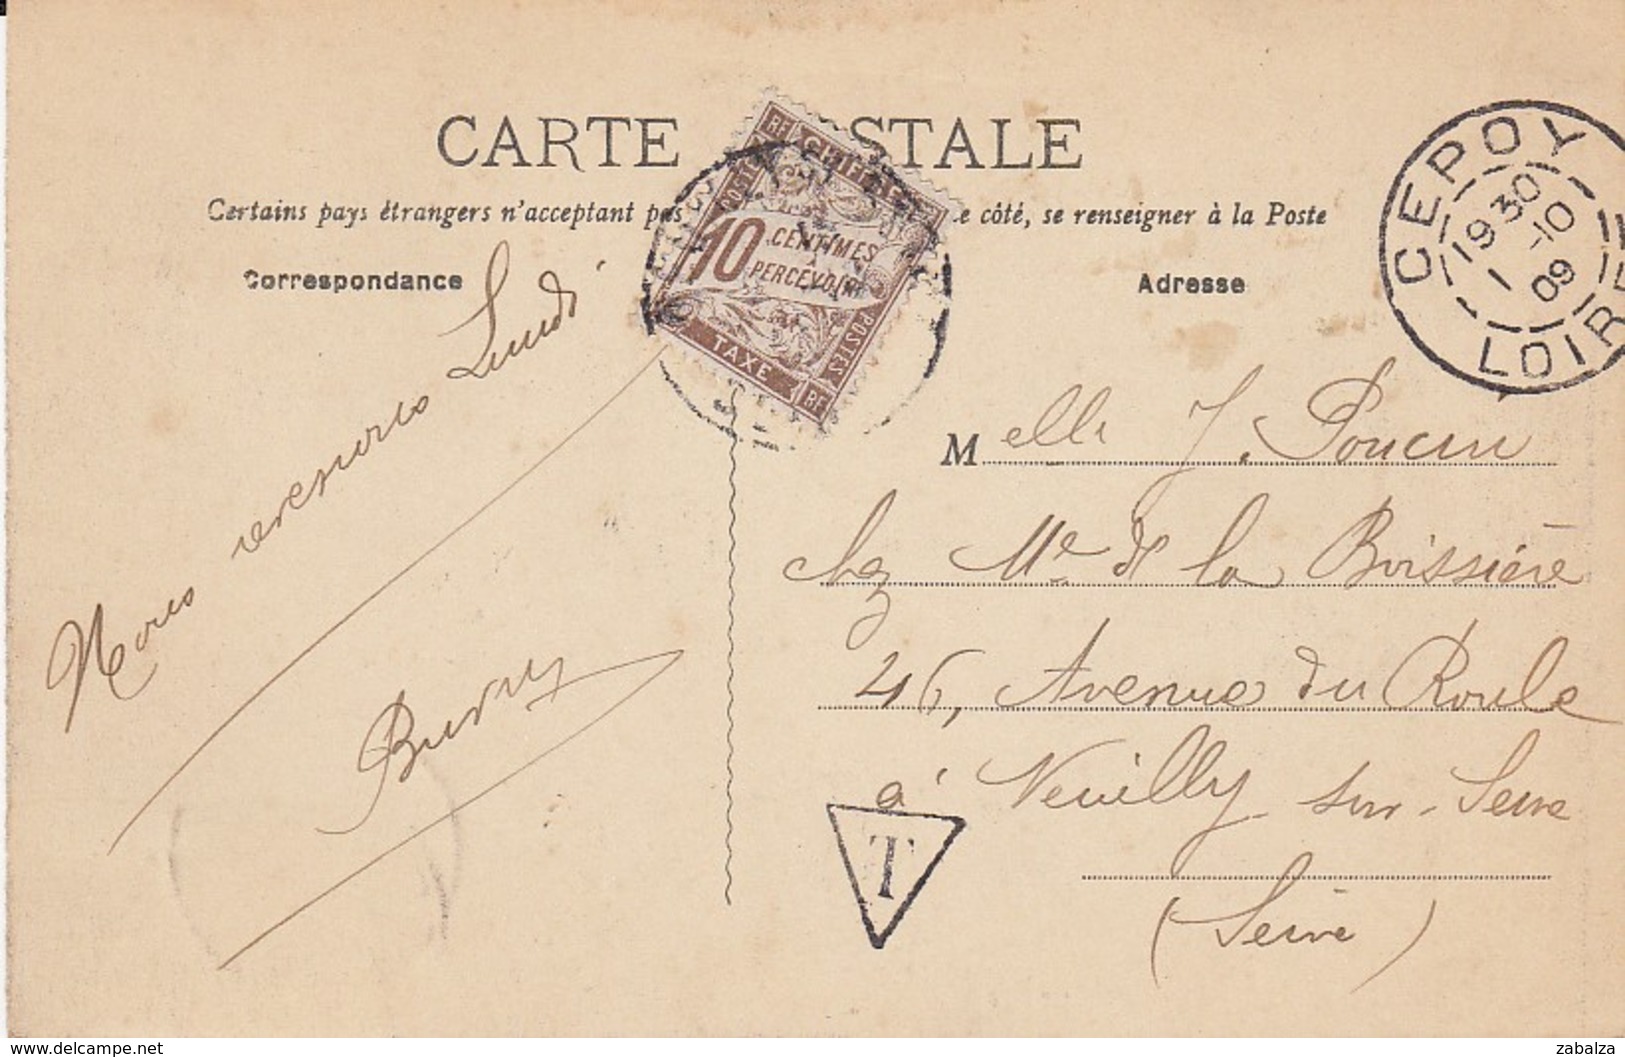 CARTE STALE
Certains pays étrangers n'acceptant pas e côté, se renseigner à la Poste
Correspondance
Adresse
RF CHIFFRE
POSTES
10 CENTIMES
À
PERCEVOIR
POSTES
TAXE
RF
CEPOY
1930
1 -10
09
LOIRET
Nous reviendrons Lundi
M elle J. Poucin
chez Me de la Boissière
46, Avenue du Roule
à Neuilly sur-Seine
(Seine)
T
www.delcampe.net
zabalza